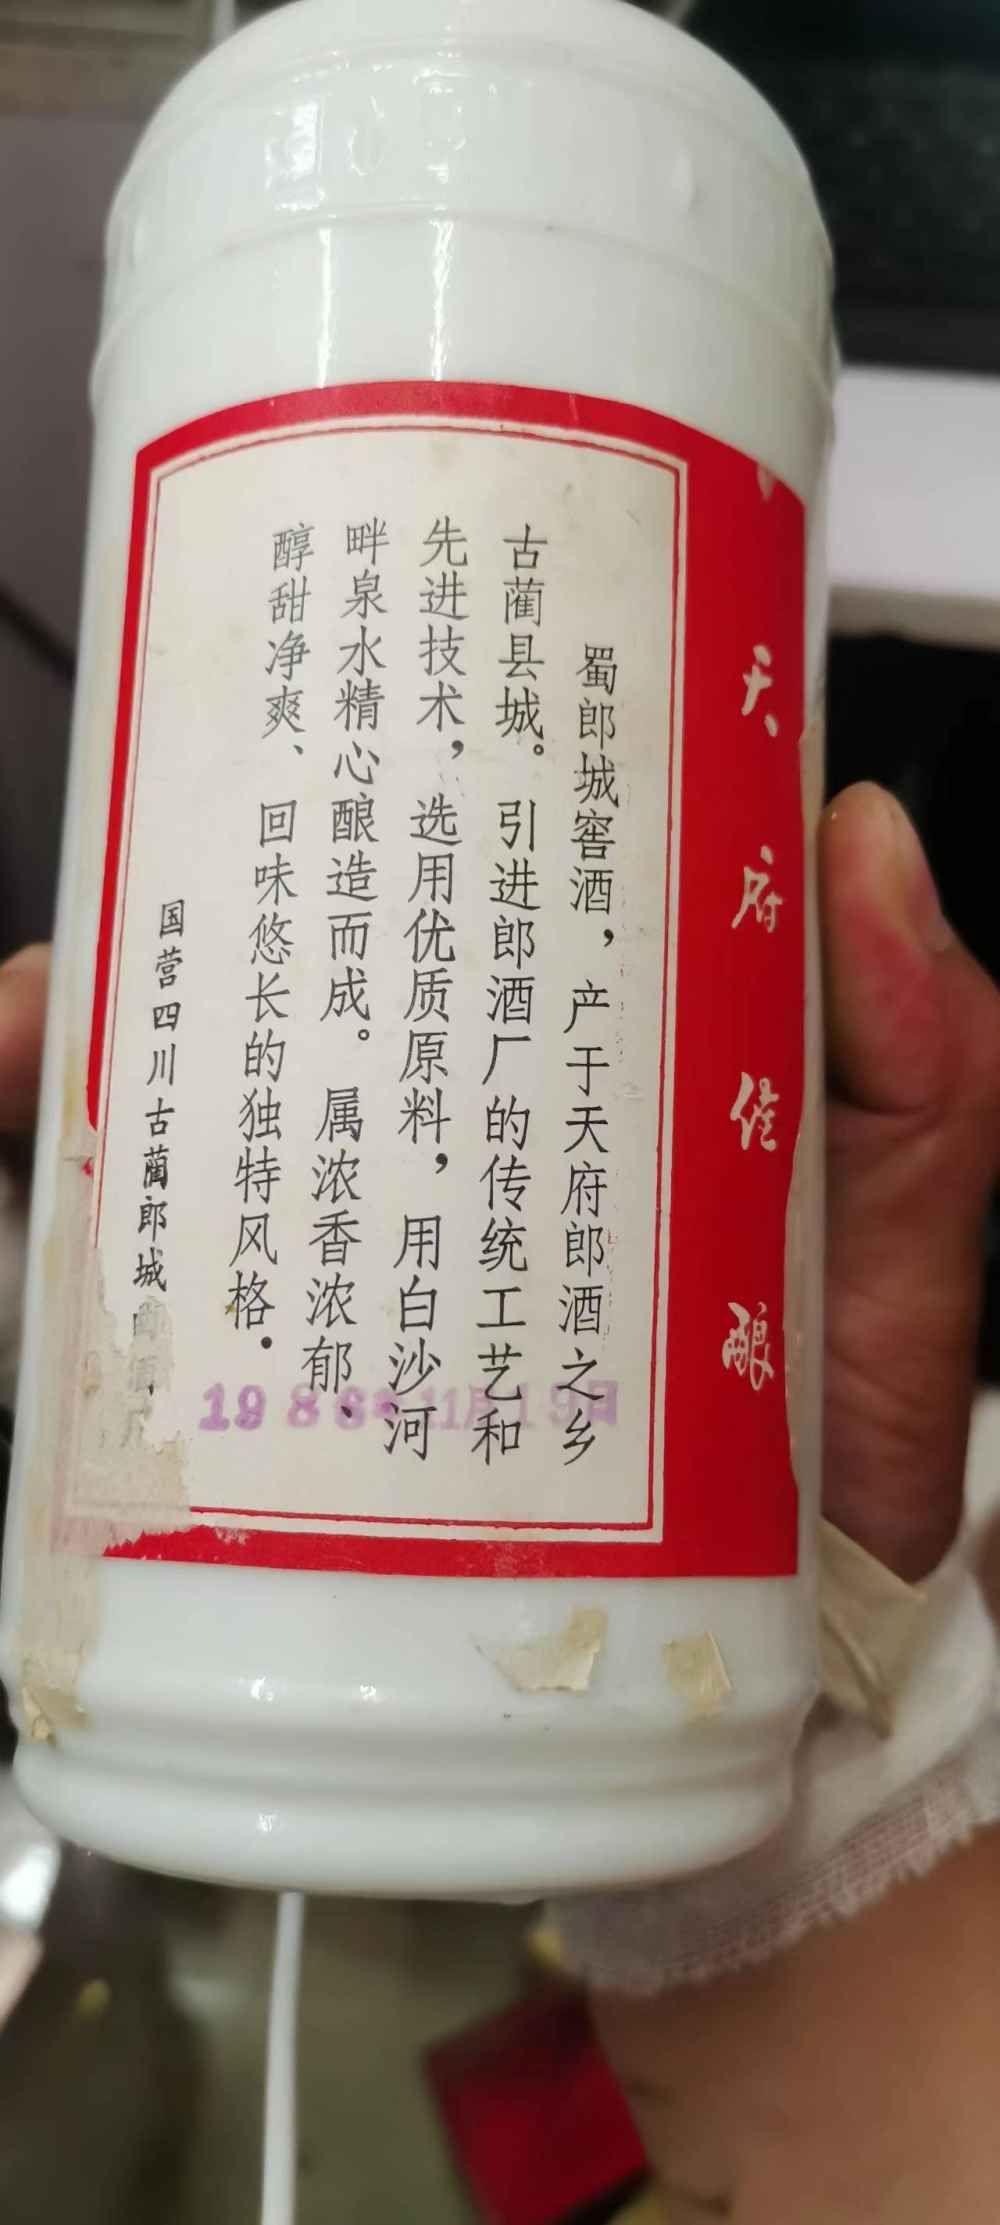 天府佳酿
蜀郎城窖酒，产于天府郎酒之乡
古蔺县城。引进郎酒厂的传统工艺和
先进技术，选用优质原料，用白沙河
畔泉水精心酿造而成。属浓香浓郁、
醇甜净爽、回味悠长的独特风格.
国营四川古蔺郎城
11月19日